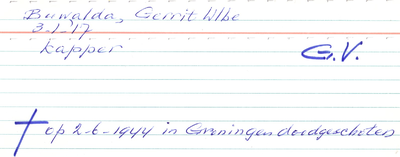 Buwalda, Gerrit Ulbe
3-1-17
kapper
G.V.
op 2-6-1944 in Groningen doodgeschoten